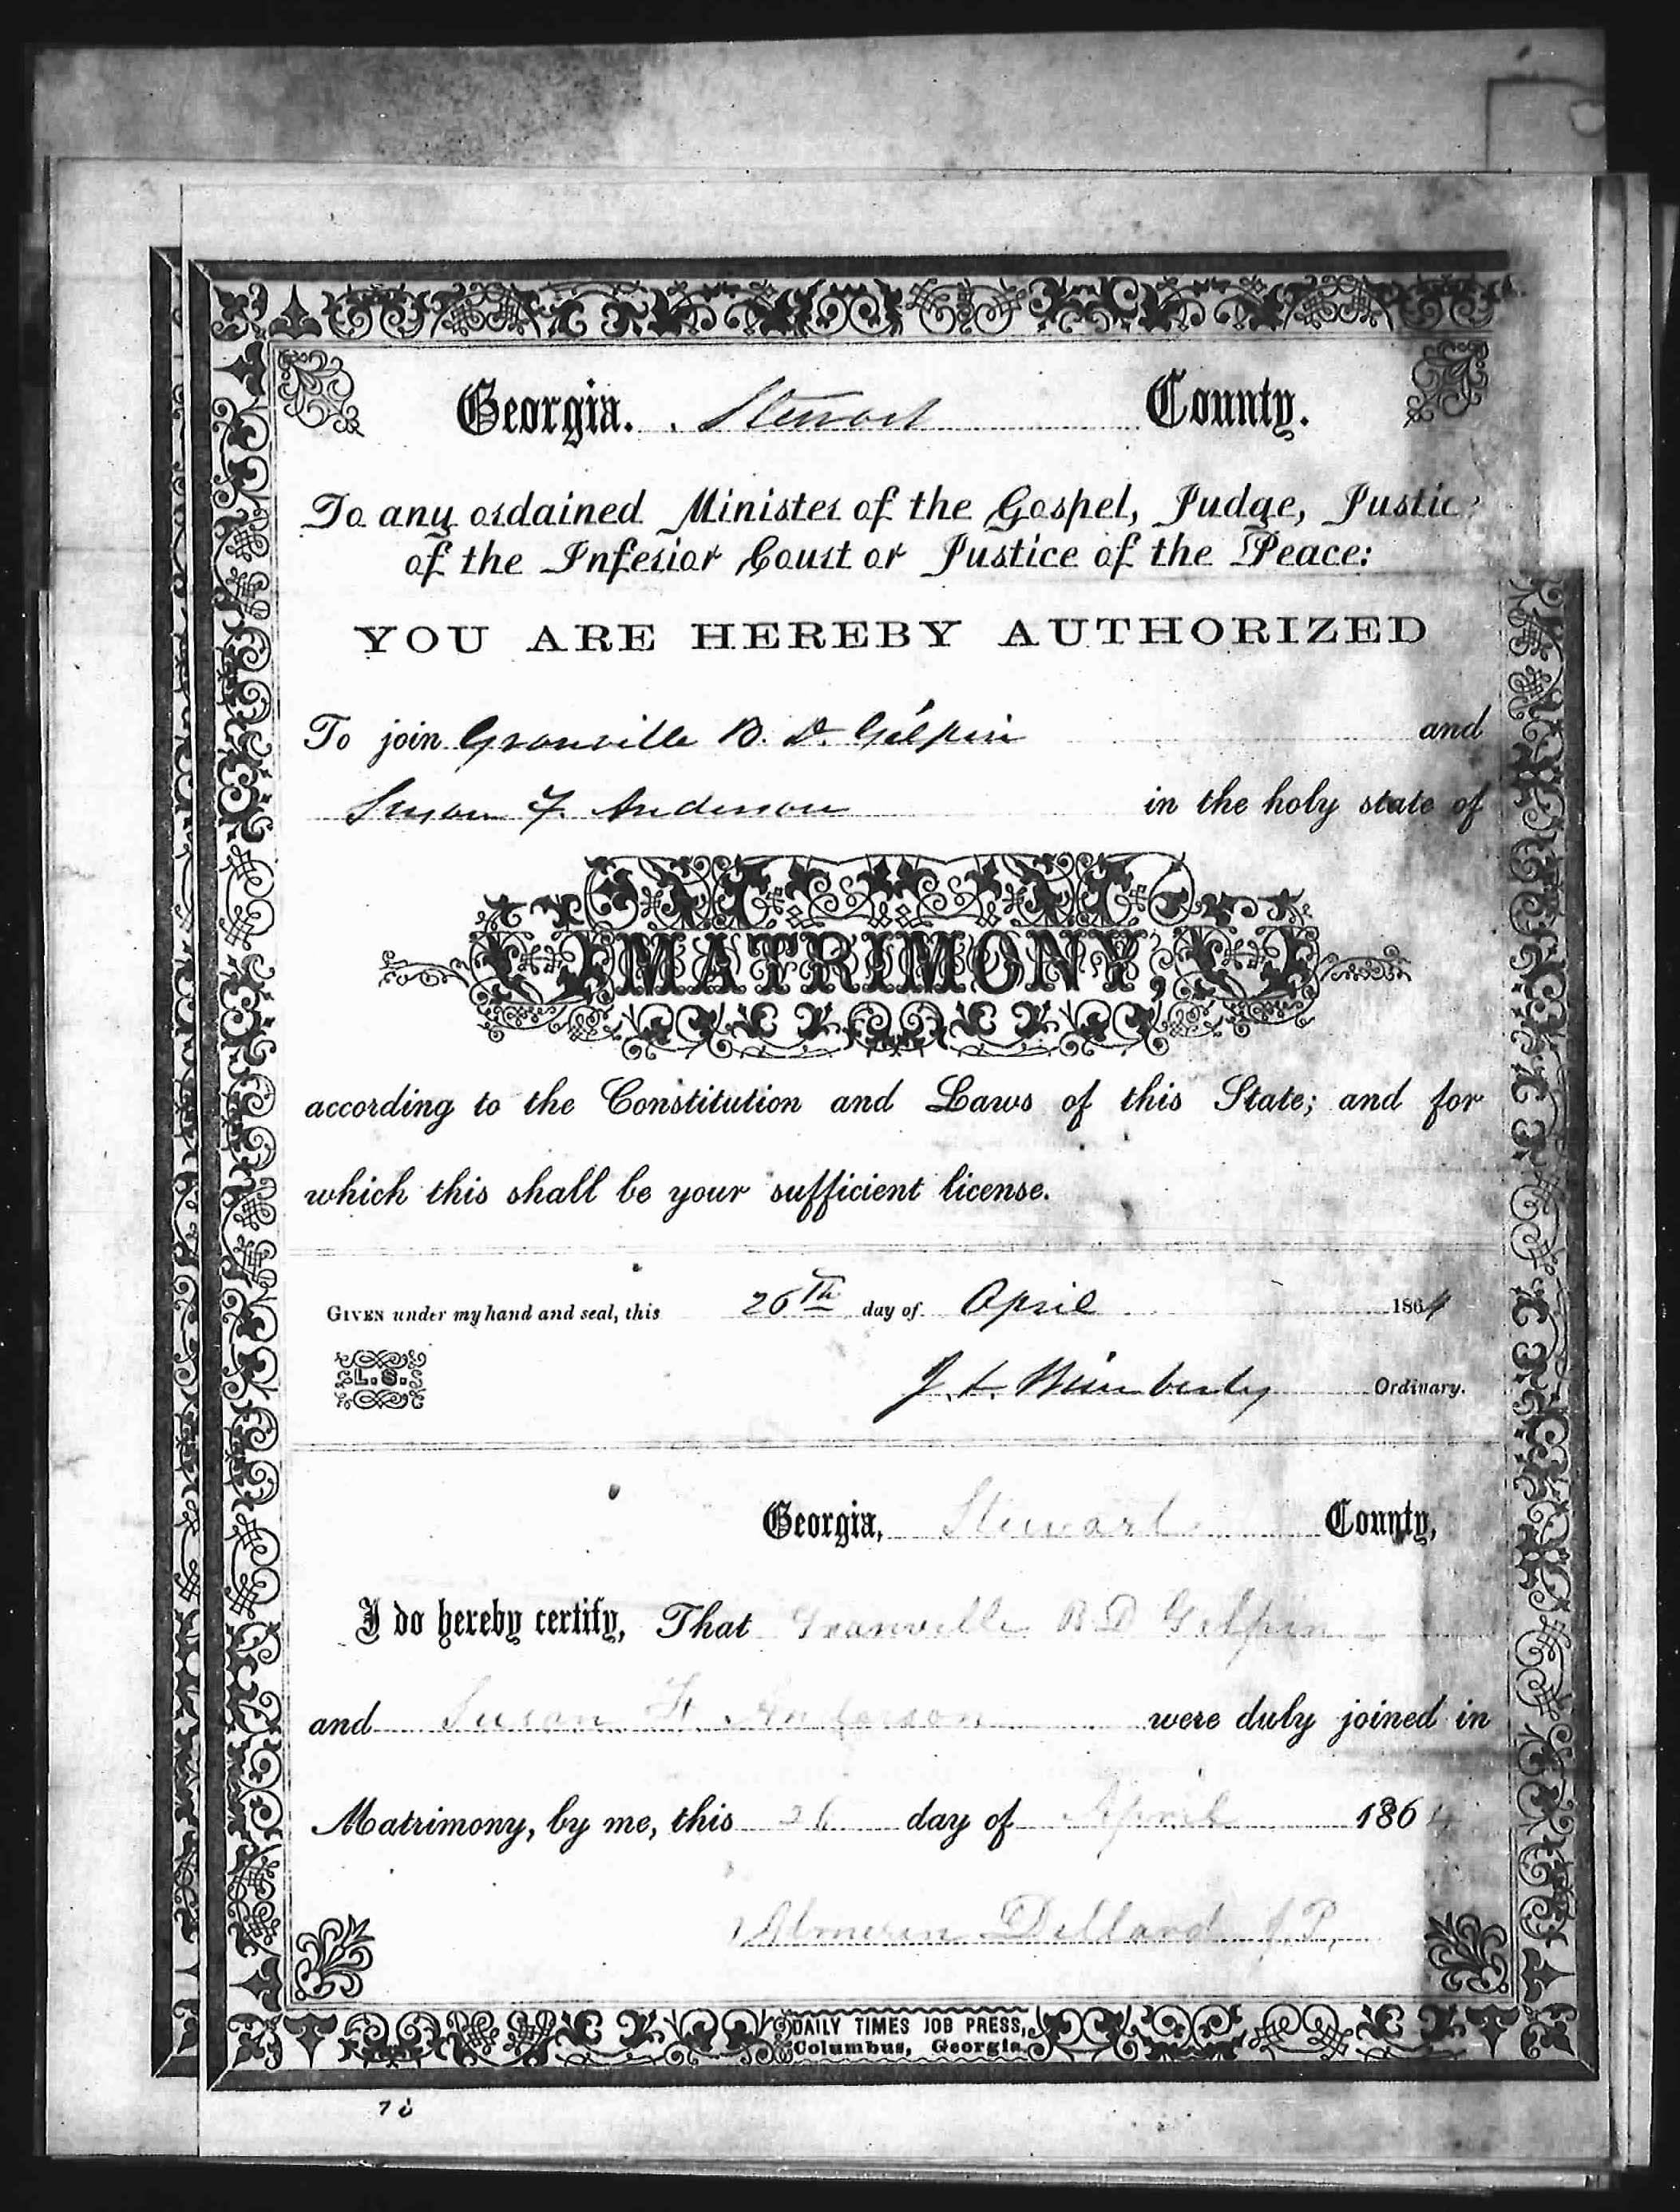 Georgia. Stewart County.
To any ordained Minister of the Gospel, Judge, Justice
of the Inferior Court or Justice of the Peace:
YOU ARE HEREBY AUTHORIZED
To join Granville B. D. Gilpin and
Susan F. Anderson in the holy state of
MATRIMONY,
according to the Constitution and Laws of this State; and for
which this shall be your sufficient license.
GIVEN under my hand and seal, this 26th day of April 1864
L. S.
J. L. Wimberly Ordinary.
Georgia, Stewart County,
I do hereby certify, That Granville B D Gilpin
and Susan F. Anderson were duly joined in
Matrimony, by me, this 26 day of April 1864
Almerin Dillard J. P.
DAILY TIMES JOB PRESS,
Columbus, Georgia